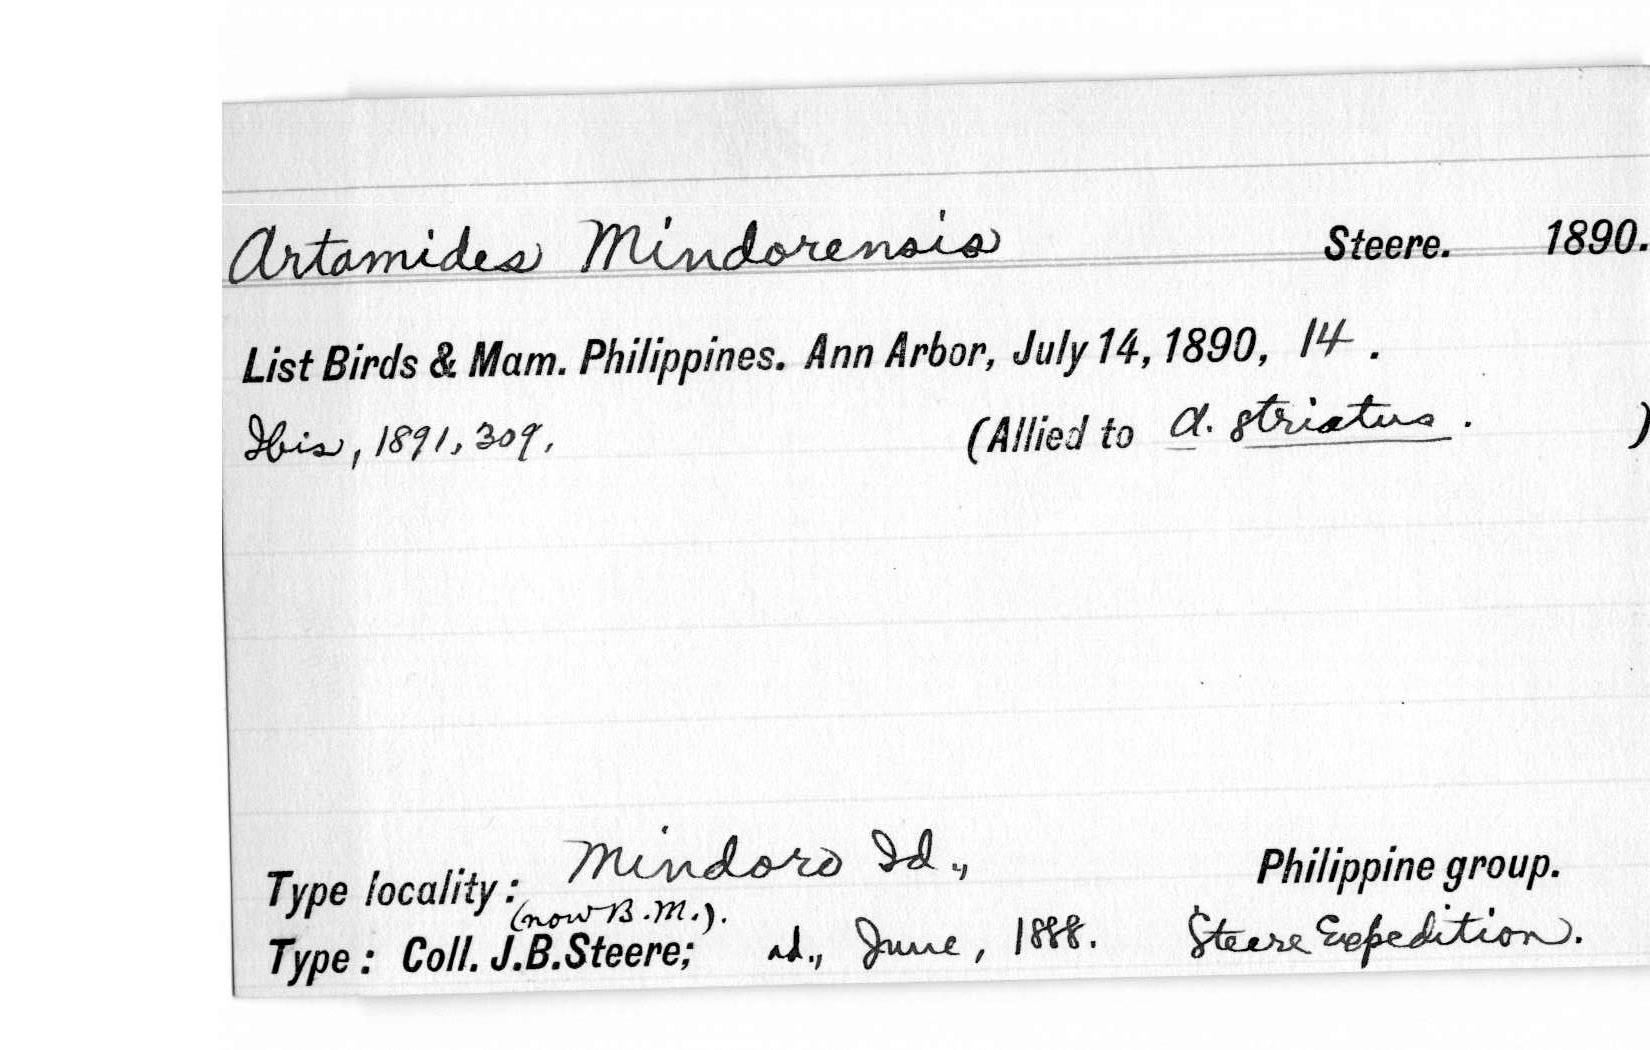 Artamides Mindorensis Steere. 1890.
List Birds & Mam. Philippines. Ann Arbor, July 14, 1890, 14.
Ibis, 1891, 309. (Allied to A. striatus. )
Type locality: Mindoro Id., Philippine group.
(now B.M.).
Type: Coll. J.B.Steere; ad., June, 1888. Steere Expedition.